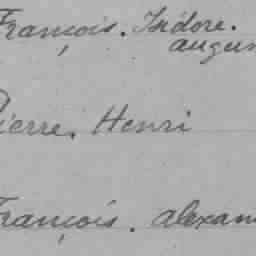 François. Isidore.
augus
Pierre. Henri
François. alexan